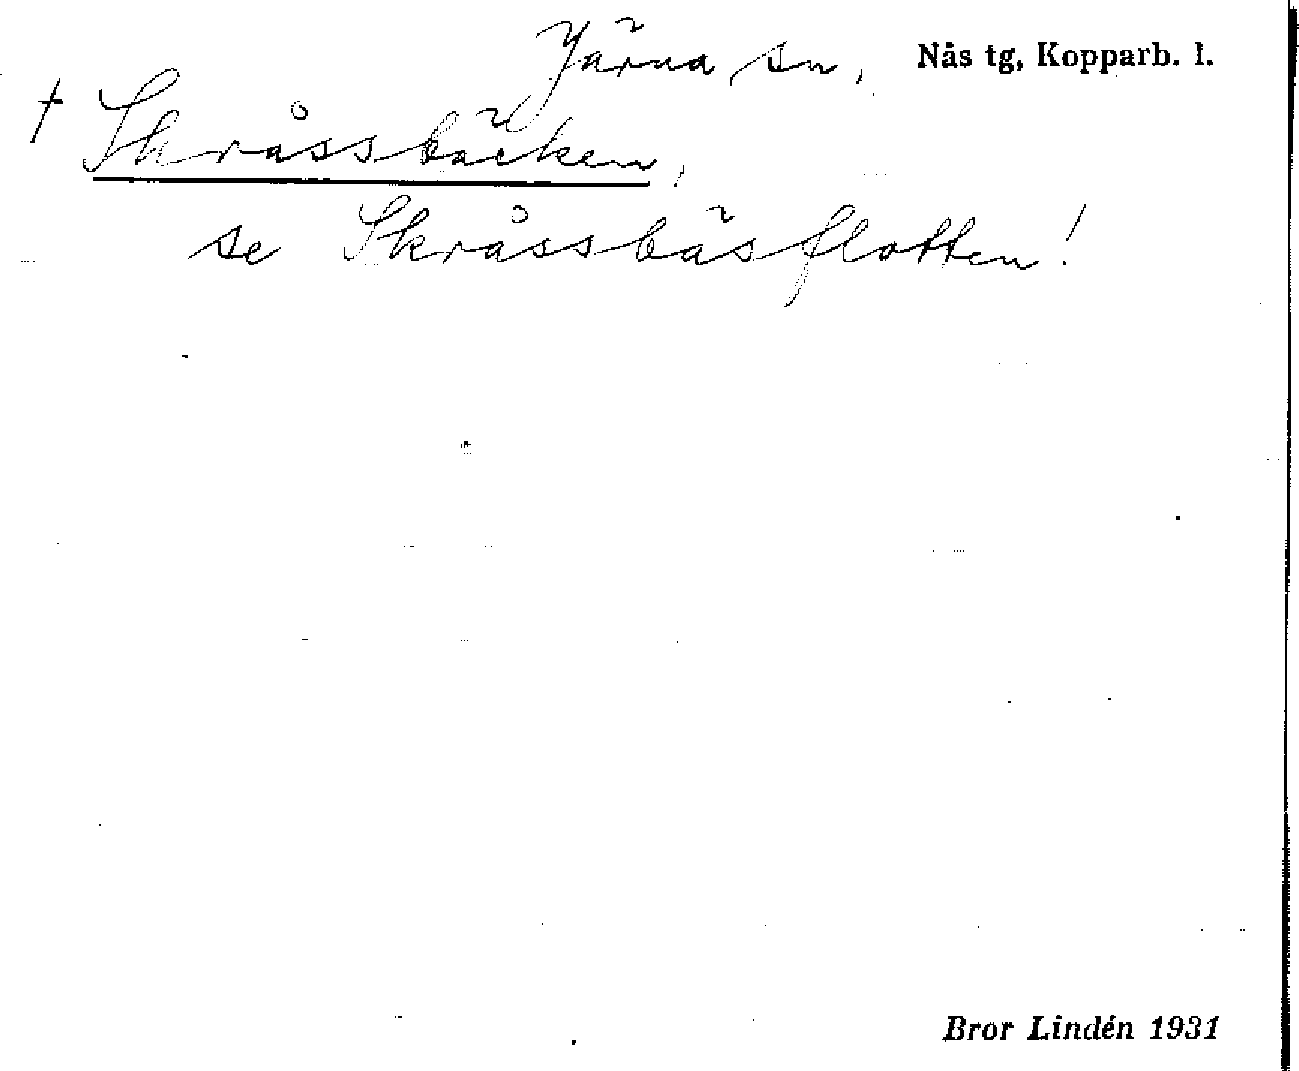 Järna sn, Nås tg, Kopparb. l.
† Skråssbäcken,
se Skråssbäsflotten!
Bror Lindén 1931